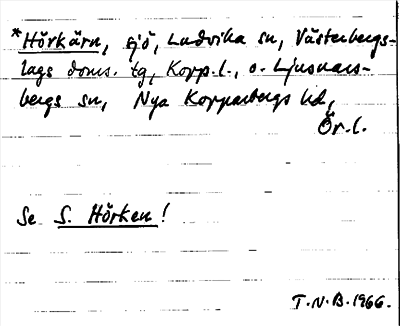 *Hörkärn, sjö, Ludvika sn, Västerbergs-
lags doms. tg, Kopp.l., o. Ljusnars-
bergs sn, Nya Kopparbergs hd,
Ör.l.
Se S. Hörken!
T.N.B. 1966.